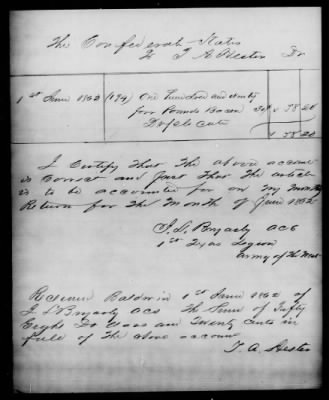 The Confederate States
To T A Hester Dr
1st June 1862 (194) One Hundred and Ninety
four Pounds Bacon 30 $ 58.20
Dolls cents
$ 58.20
I Certify that the above account
is Correct and Just that the article
is to be accounted for on my Monthly
Return for the Month of June 1862
J. D. Bryarly ACS
1st Texas Legion
Army of the West
Received Baldwin 1st June 1862 of
J D Bryarly ACS the Sum of Fifty
Eight Dollars and Twenty cents in
full of the above account
T. A. Hester